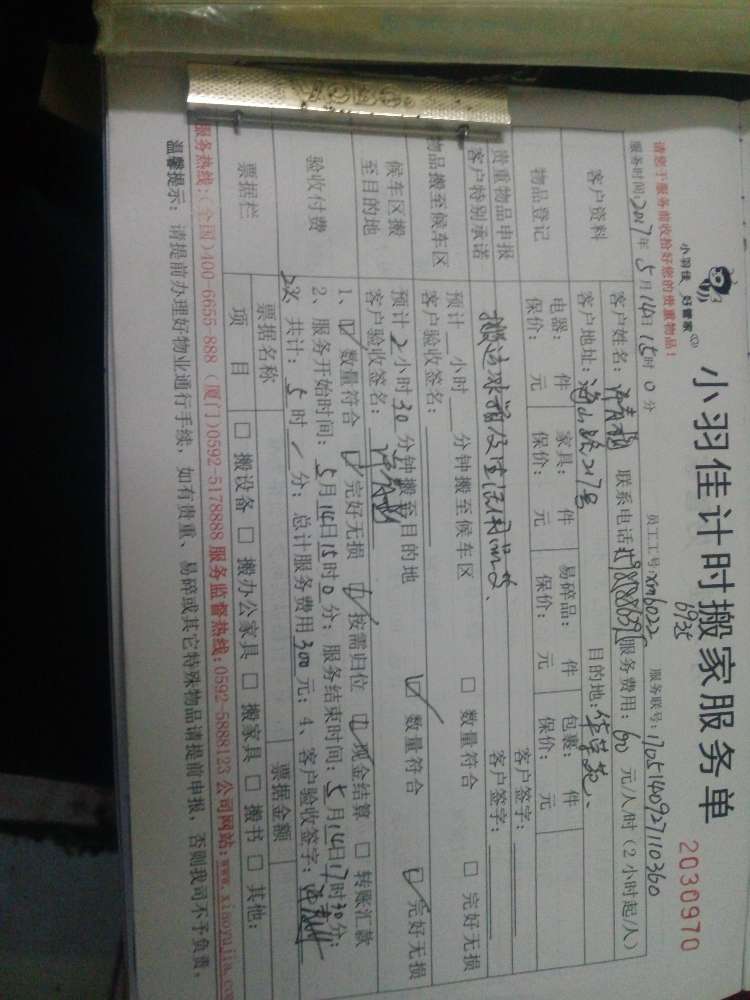 小羽佳 好管家
小羽佳计时搬家服务单
2030970
请您于服务前收拾好您的贵重物品！
员工工号：xm6022
服务联号：1705140927110360
服务时间：2017年5月14日15时0分
客户资料
客户姓名：
联系电话
服务费用：60元/人/时（2小时起/人）
客户地址：海山路217号
目的地：华荣苑、
物品登记
电器： 件 家具： 件 易碎品： 件 包裹： 件
保价： 元 保价： 元 保价： 元 保价： 元
客户签字：
贵重物品申报
客户特别承诺
客户签字：
物品搬至候车区
预计 小时 分钟搬至候车区 □ 数量符合 □ 完好无损
客户验收签名：
候车区搬
至目的地
预计2小时30分钟搬至目的地 ☑ 数量符合 ☑ 完好无损
客户验收签名：
验收付费
1、☑ 数量符合 ☑ 完好无损 ☑ 按需归位 ☑ 现金结算 □ 转账汇款
2、服务开始时间：5月14日15时0分；服务结束时间：5月14日17时30分；
共计：5时/分；总计服务费用300元；4、客户验收签字：
票据栏
票据名称
票据金额
项 目 □ 搬设备 □ 搬办公家具 □ 搬家具 □ 搬书 □ 其他：
服务热线：(全国)400-6655 888 (厦门)0592-5178888 服务监督热线：0592-5888123 公司网站：www.xiaoyujia.co
温馨提示：请提前办理好物业通行手续，如有贵重、易碎或其它特殊物品请提前申报，否则我司不予负责，